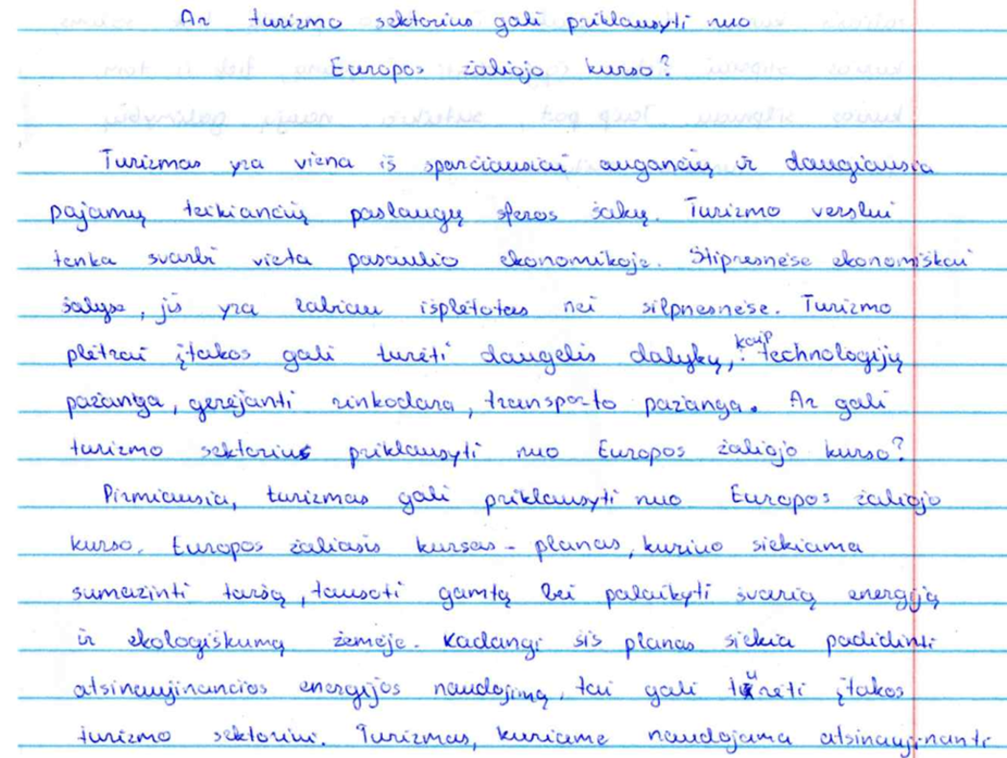 Ar turizmo sektorius gali priklausyti nuo
Europos žaliojo kurso?
Turizmas yra viena iš sparčiausiai augančių ir daugiausia
pajamų teikiančių paslaugų sferos šakų. Turizmo verslui
tenka svarbi vieta pasaulio ekonomikoje. Stipresnėse ekonomiškai
šalyse, jis yra labiau išplėtotas nei silpnesnėse. Turizmo
plėtrai įtakos gali turėti daugelis dalykų, kaip technologijų
pažanga, gerėjanti rinkodara, transporto pažanga. Ar gali
turizmo sektorius priklausyti nuo Europos žaliojo kurso?
Pirmiausia, turizmas gali priklausyti nuo Europos žaliojo
kurso. Europos žaliasis kursas - planas, kuriuo siekiama
sumažinti taršą, tausoti gamtą bei palaikyti švarią energiją
ir ekologiškumą žemėje. Kadangi šis planas siekia padidinti
atsinaujinančios energijos naudojimą, tai gali turėti įtakos
turizmo sektoriui. Turizmas, kuriame naudojama atsinaujinanti